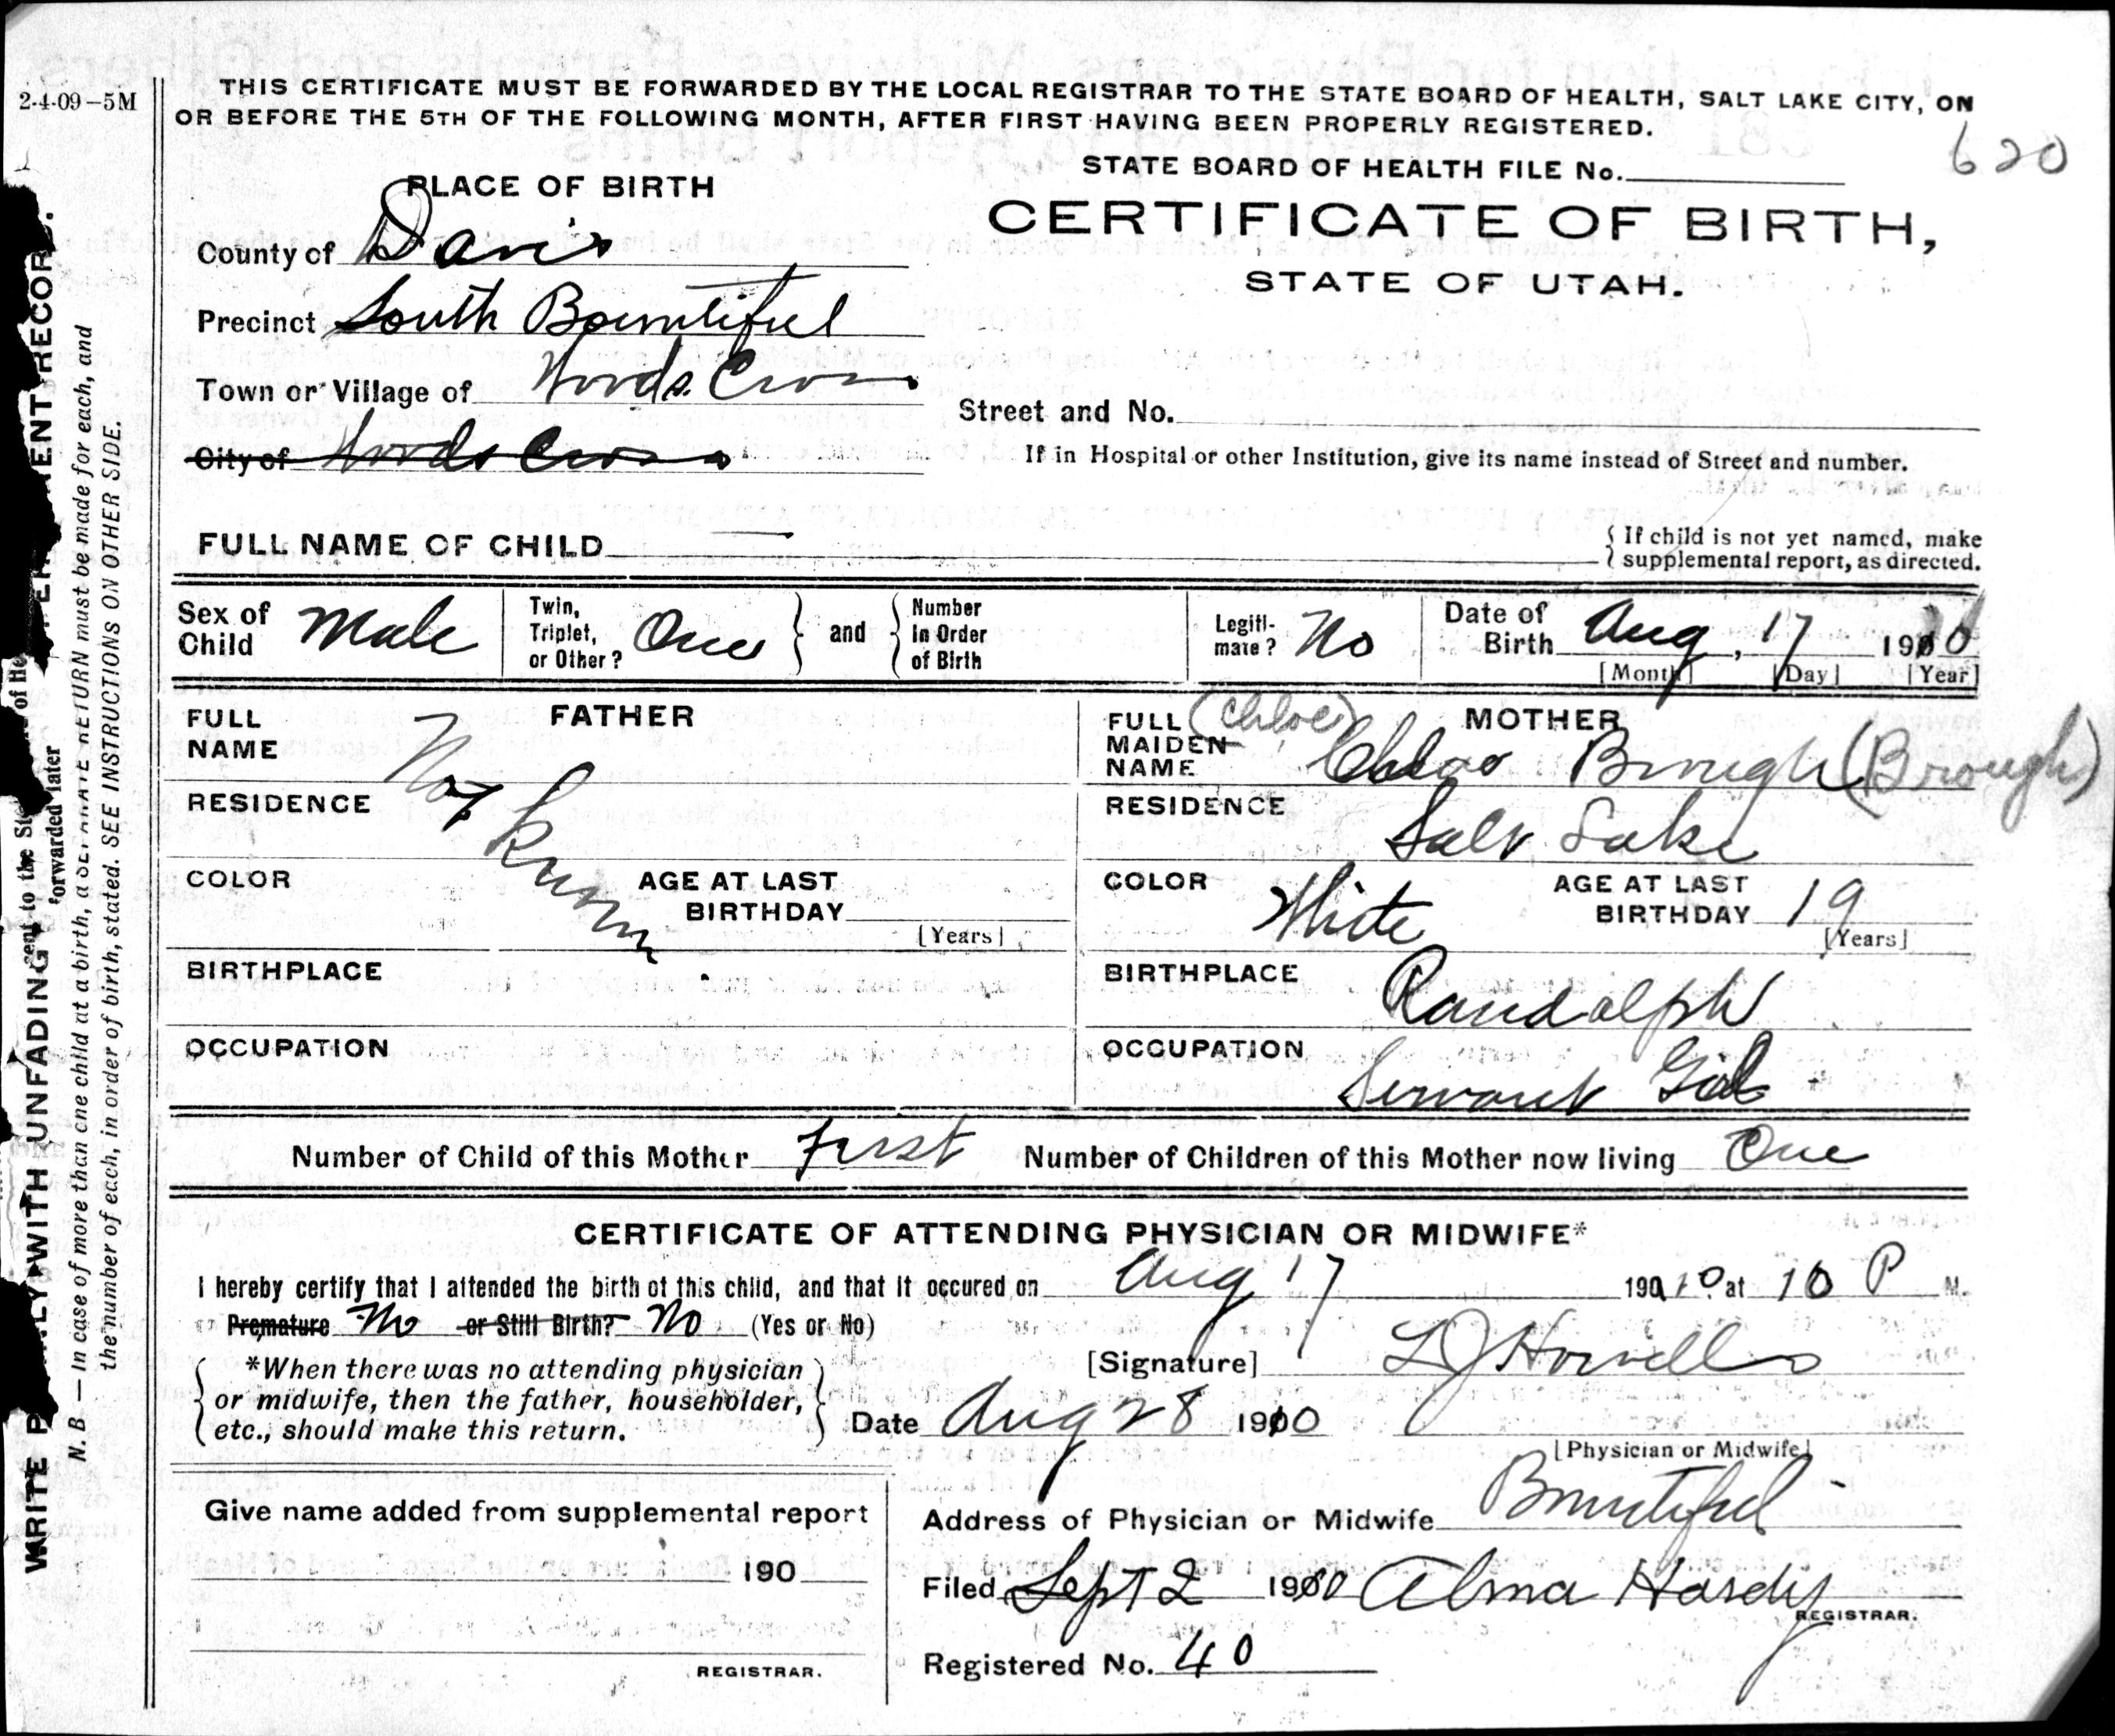 2-4-09-5M
THIS CERTIFICATE MUST BE FORWARDED BY THE LOCAL REGISTRAR TO THE STATE BOARD OF HEALTH, SALT LAKE CITY, ON
OR BEFORE THE 5TH OF THE FOLLOWING MONTH, AFTER FIRST HAVING BEEN PROPERLY REGISTERED.
620
STATE BOARD OF HEALTH FILE No.
PLACE OF BIRTH
CERTIFICATE OF BIRTH,
STATE OF UTAH.
County of Davis
Precinct South Bountiful
Town or Village of Woods Cross
City of Woods Cross
Street and No.
If in Hospital or other Institution, give its name instead of Street and number.
FULL NAME OF CHILD
{ If child is not yet named, make
supplemental report, as directed.
Sex of Child Male
Twin, Triplet, or Other? One } and { Number In Order of Birth
Legiti-mate? No
Date of Birth Aug, 17 1910
[Month] [Day] [Year]
FATHER
FULL NAME Not Known
RESIDENCE
COLOR
AGE AT LAST BIRTHDAY
[Years]
BIRTHPLACE
OCCUPATION
MOTHER
FULL MAIDEN NAME (Chloe) Chloe Brough (Brough)
RESIDENCE Salt Lake
COLOR White
AGE AT LAST BIRTHDAY 19
[Years]
BIRTHPLACE Randolph
OCCUPATION Servant Girl
Number of Child of this Mother First Number of Children of this Mother now living One
CERTIFICATE OF ATTENDING PHYSICIAN OR MIDWIFE*
I hereby certify that I attended the birth of this child, and that it occured on Aug 17 1910 at 10 P M.
Premature No or Still Birth? No (Yes or No)
{ *When there was no attending physician
or midwife, then the father, householder,
etc., should make this return. }
[Signature] L J Howells
Date Aug 28 1910
[Physician or Midwife]
Give name added from supplemental report
190
REGISTRAR.
Address of Physician or Midwife Bountiful
Filed Sept 2 1910 Alma Hardy
REGISTRAR.
Registered No. 40
WITH UNFADING
N. B. — In case of more than one child at a birth, a SEPARATE RETURN must be made for each, and
the number of each, in order of birth, stated. SEE INSTRUCTIONS ON OTHER SIDE.